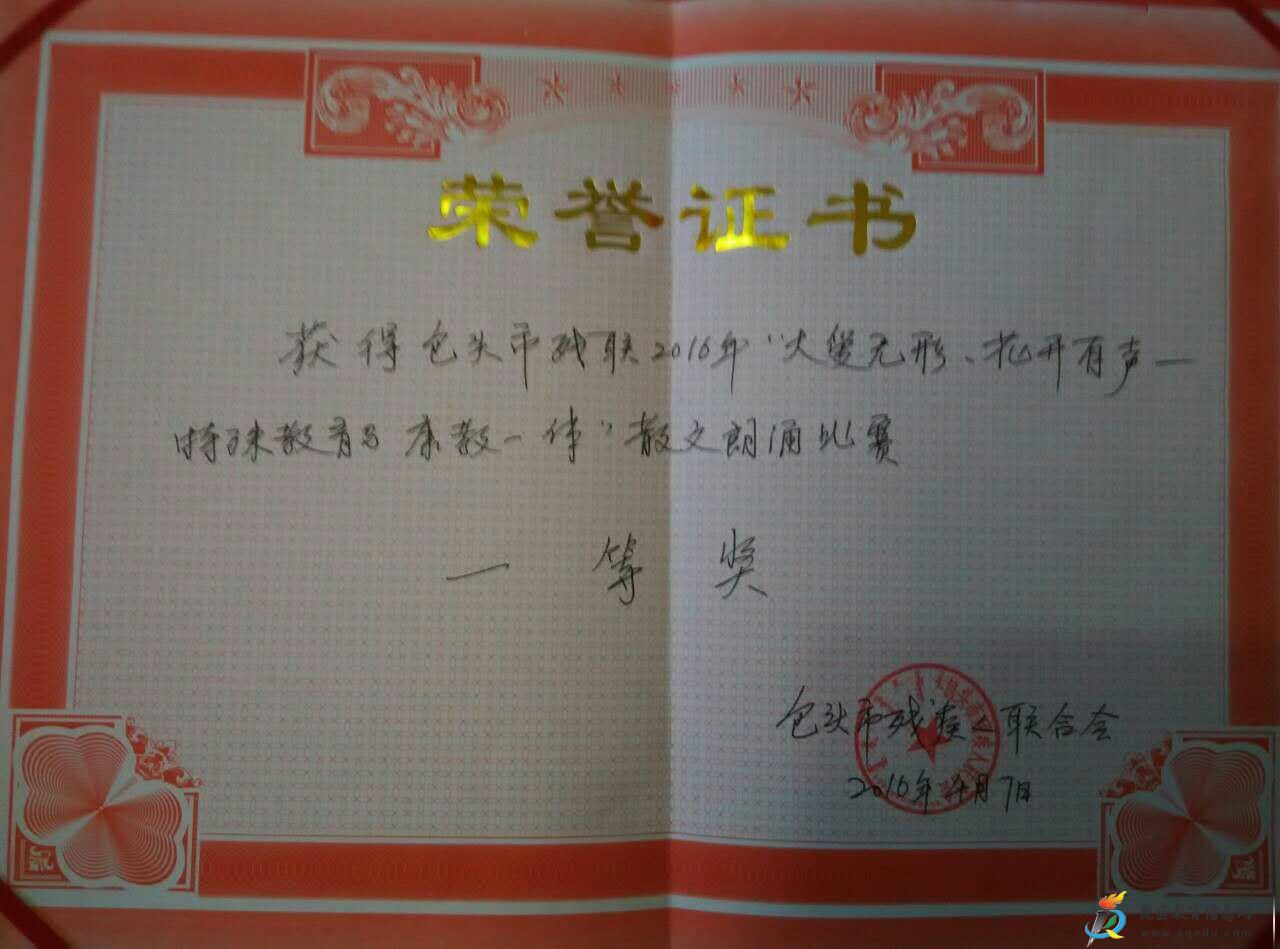 荣誉证书
获得包头市残联2016年“大爱无形、花开有声一
特殊教育与康教一体”散文朗诵比赛
一等奖
包头市残疾人联合会
2016年 月7日
www.kqedu.com